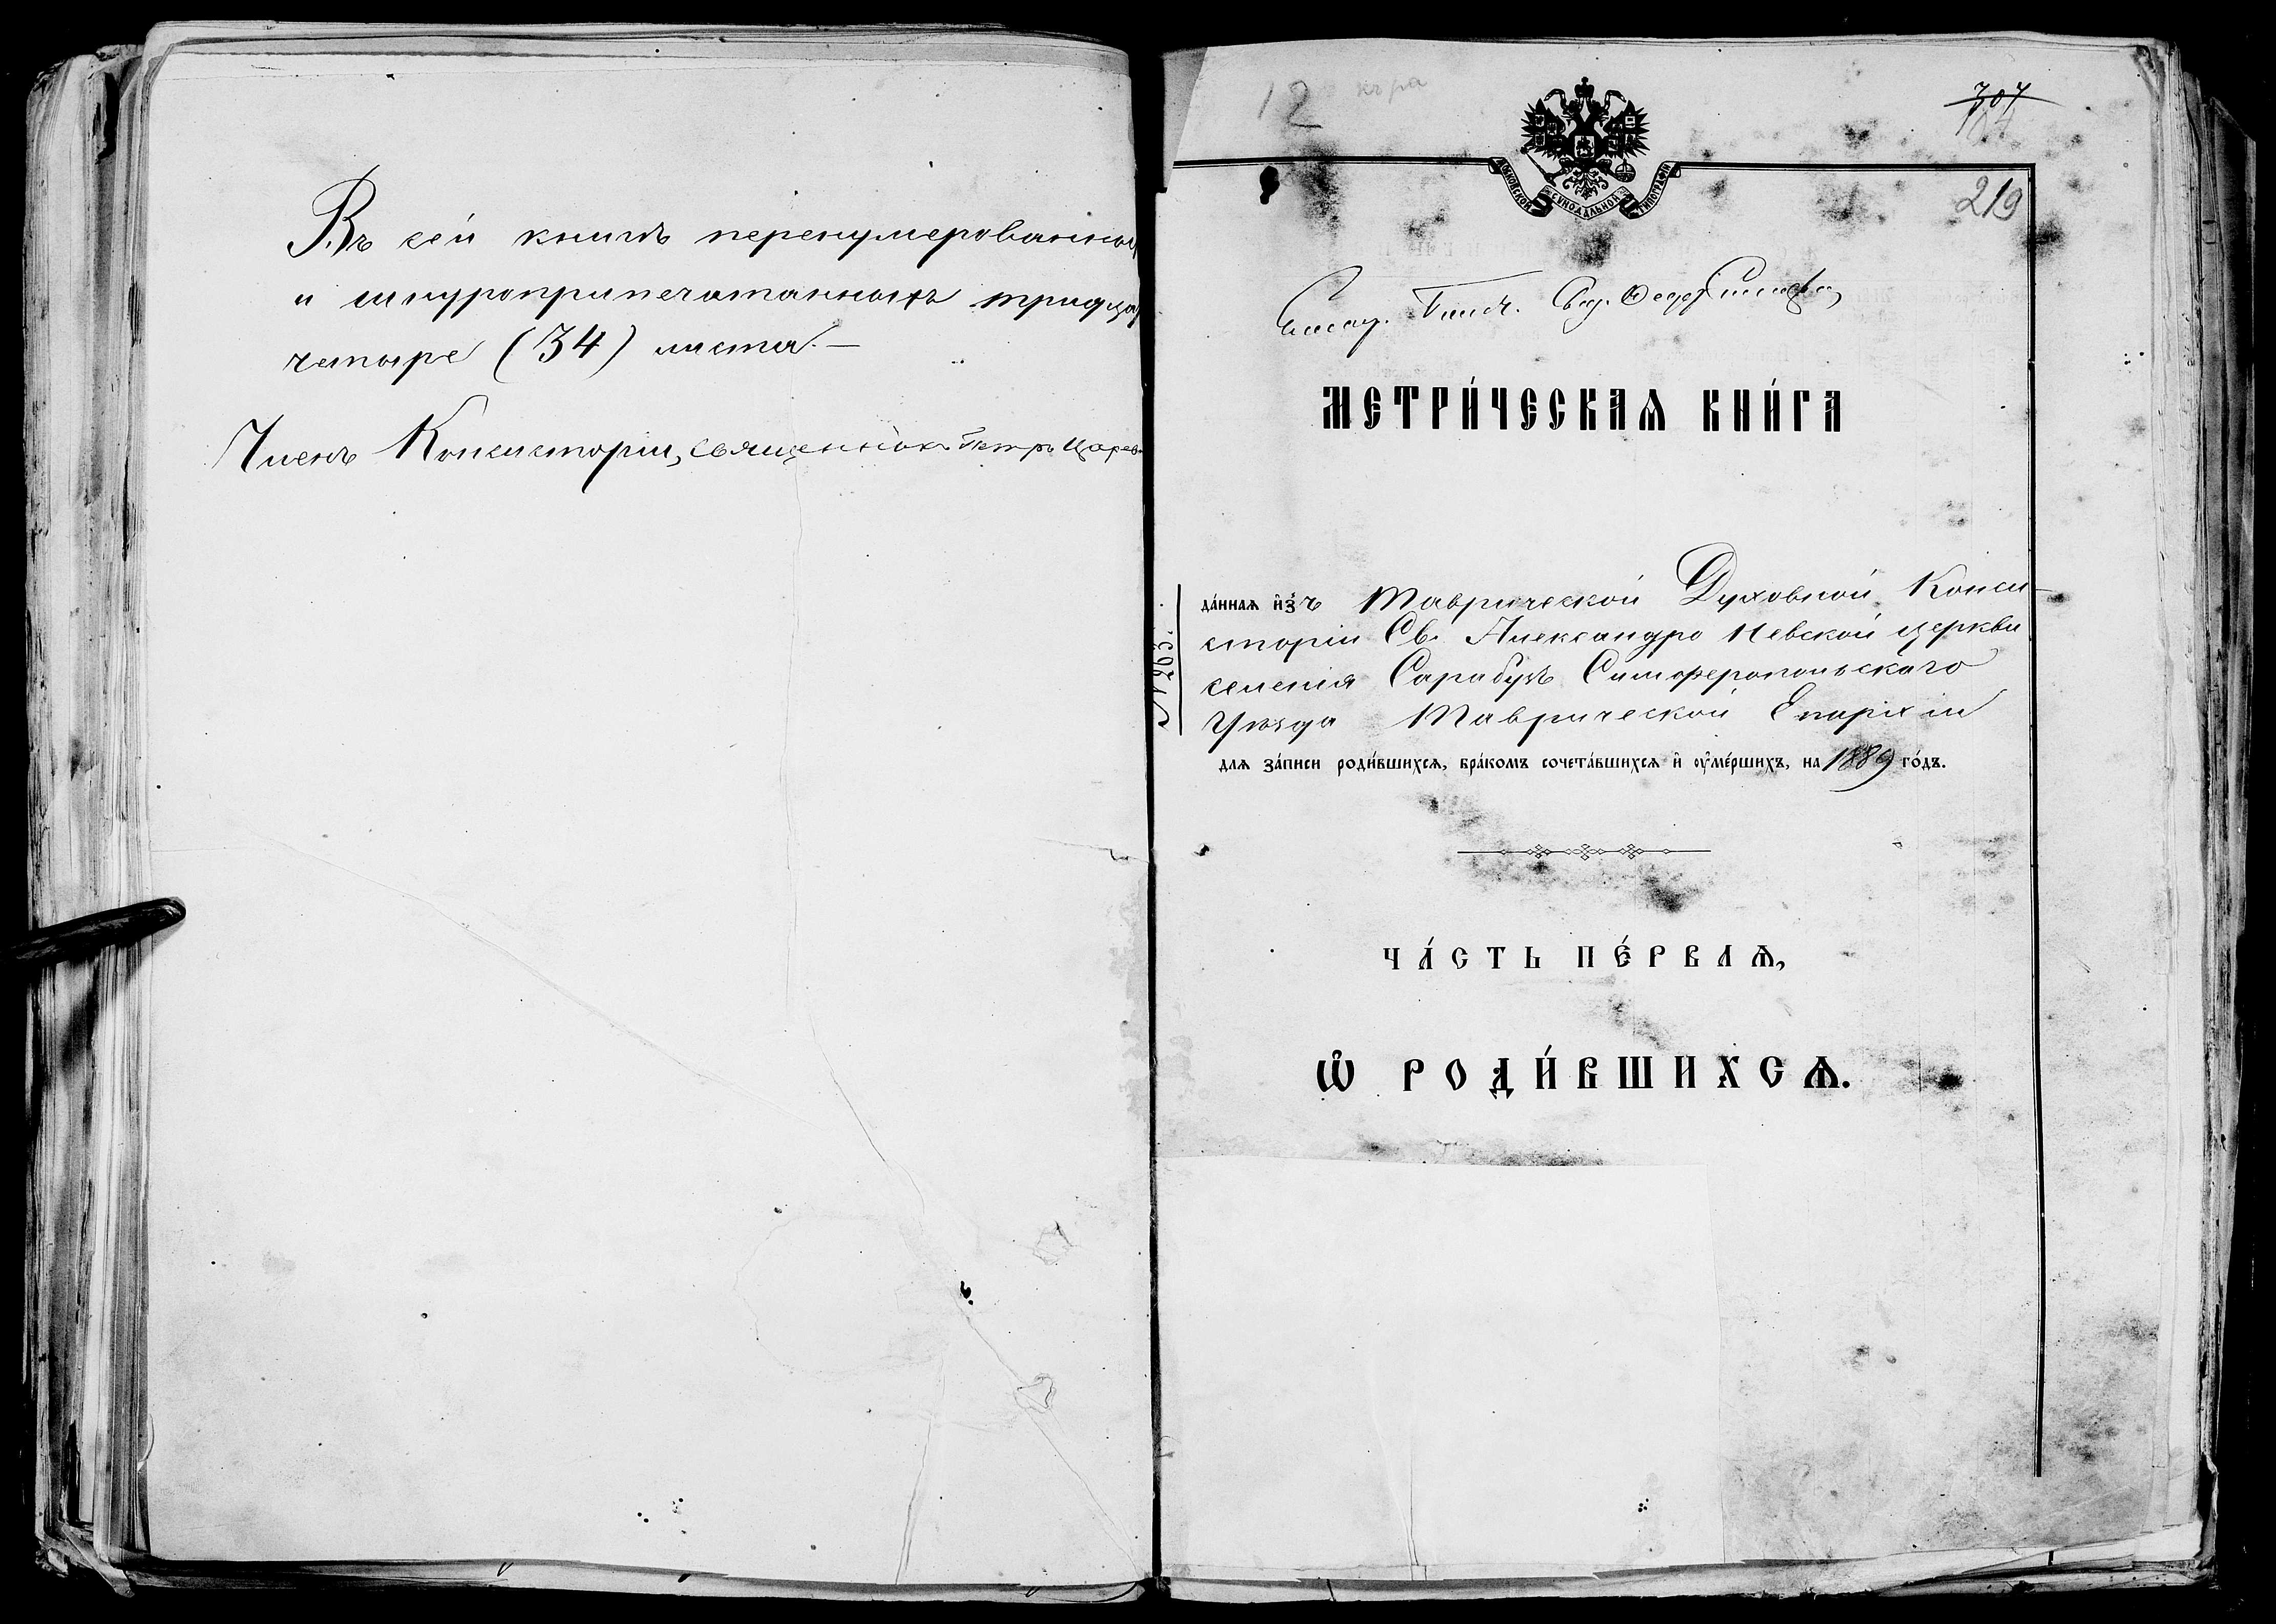 Въ сей книгѣ перенумерованныхъ
и шнуроприпечатанныхъ тридца
четыре (34) листа.—
Членъ Консисторіи, священникъ Петръ Царев
12
307
184
МОСКОВСКОЙ СѴНОДАЛЬНОЙ ТИПОГРАФІИ
219
МЕТРИ́ЧЕСКАѦ КНИ́ГА
№ 263.
да́ннаѧ и҆з̾ъ Таврической Духовной Конси-
сторіи Св. Александро Невской церкви
селенія Сарабузъ Симферопольскаго
Уѣзда Таврической Епархіи
длѧ за́писи роди́вшихсѧ, бра́комъ сочета́вшихсѧ и҆ оу҆ме́ршихъ, на 1889 го́дъ.
ЧА́СТЬ ПЕ́РВАѦ,
Ѡ҆ РОДИ́ВШИХСѦ.